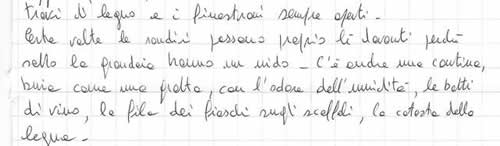 travi di legno e i finestroni sempre aperti.
Certe volte le rondini passano proprio lì davanti perché
sotto la grondaia hanno un nido. C'è anche una cantina,
buia come una grotta, con l'odore dell'umidità, le botti
di vino, le fila dei fiaschi sugli scaffali, la catasta della
legna.